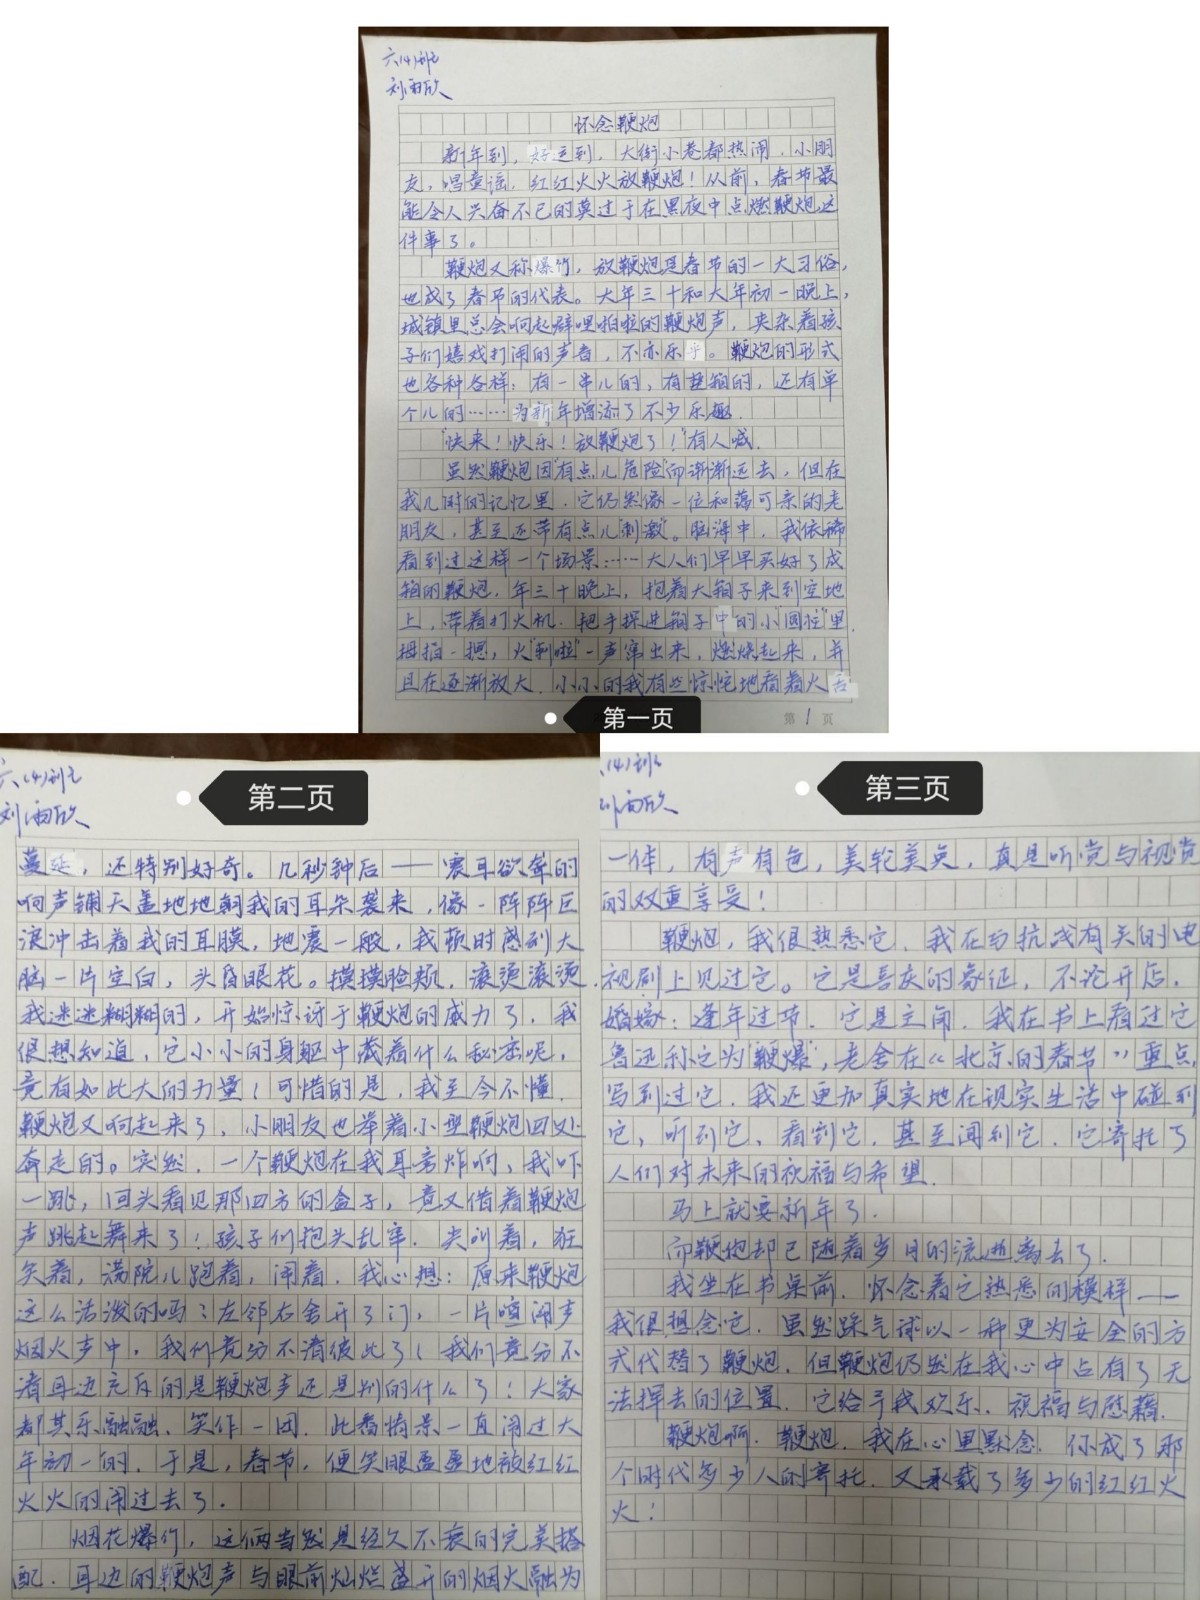 六(4)班
刘雨欣
怀念鞭炮
新年到，好运到，大街小巷都热闹，小朋
友，唱童谣，红红火火放鞭炮！从前，春节最
能令人兴奋不已的莫过于在黑夜中点燃鞭炮这
件事了。
鞭炮又称爆竹，放鞭炮是春节的一大习俗，
也成了春节的代表。大年三十和大年初一晚上，
城镇里总会响起噼哩啪啦的鞭炮声，夹杂着孩
子们嬉戏打闹的声音，不亦乐乎。鞭炮的形式
也各种各样：有一串儿的，有整箱的，还有单
个儿的……为新年增添了不少乐趣.
“快来！快乐！放鞭炮了！”有人喊.
虽然鞭炮因“有点儿危险”而渐渐远去，但在
我儿时的记忆里，它仍然像一位和蔼可亲的老
朋友，甚至还带有点儿“刺激”。脑海中，我依稀
看到过这样一个场景……大人们早早买好了成
箱的鞭炮，年三十晚上，抱着大箱子来到空地
上，带着打火机，把手探进箱子中的小“圆柱”里，
拇指一摁，火“刺啦”一声窜出来，燃烧起来，并
且在逐渐放大，小小的我有些惊慌地看着火舌
第1页
第一页
六(4)班
刘雨欣
第二页
蔓延，还特别好奇。几秒钟后——震耳欲聋的
响声铺天盖地地朝我的耳朵袭来，像一阵阵巨
浪冲击着我的耳膜，地震一般，我顿时感到大
脑一片空白，头昏眼花。摸摸脸颊，滚烫滚烫.
我迷迷糊糊的，开始惊讶于鞭炮的威力了，我
很想知道，它小小的身躯中藏着什么秘密呢，
竟有如此大的力量！可惜的是，我至今不懂.
鞭炮又响起来了，小朋友也举着小型鞭炮四处
奔走的。突然，一个鞭炮在我耳旁炸响，我吓
一跳，回头看见那四方的盒子，竟又借着鞭炮
声跳起舞来了！孩子们抱头乱窜，尖叫着，狂
笑着，满院儿跑着，闹着，我心想：原来鞭炮
这么活泼的吗？左邻右舍开了门，一片喧闹声
烟火声中，我们竟分不清彼此了！我们竟分不
清耳边充斥的是鞭炮声还是别的什么了！大家
都其乐融融，笑作一团，此番情景一直闹过大
年初一的，于是，春节，便笑眼盈盈地被红红
火火的闹过去了.
烟花爆竹，这俩当然是经久不衰的完美搭
配，耳边的鞭炮声与眼前灿烂盛开的烟火融为
(4)班
刘雨欣
第三页
一体，有声有色，美轮美奂，真是听觉与视觉
的双重享受！
鞭炮，我很熟悉它，我在与抗战有关的电
视剧上见过它。它是喜庆的象征，不论开店，
婚嫁；逢年过节，它是主角，我在书上看过它
鲁迅称它为“鞭爆”，老舍在《北京的春节》重点
写到过它，我还更加真实地在现实生活中碰到
它，听到它，看到它，甚至闻到它，它寄托了
人们对未来的祝福与希望.
马上就要新年了.
而鞭炮却已随着岁月的流逝离去了.
我坐在书桌前，怀念着它熟悉的模样——
我很想念它，虽然踩气球以一种更为安全的方
式代替了鞭炮，但鞭炮仍然在我心中占有了无
法挥去的位置，它给予我欢乐、祝福与慰藉.
鞭炮啊，鞭炮，我在心里默念，你成了那
个时代多少人的寄托，又承载了多少的红红火
火！